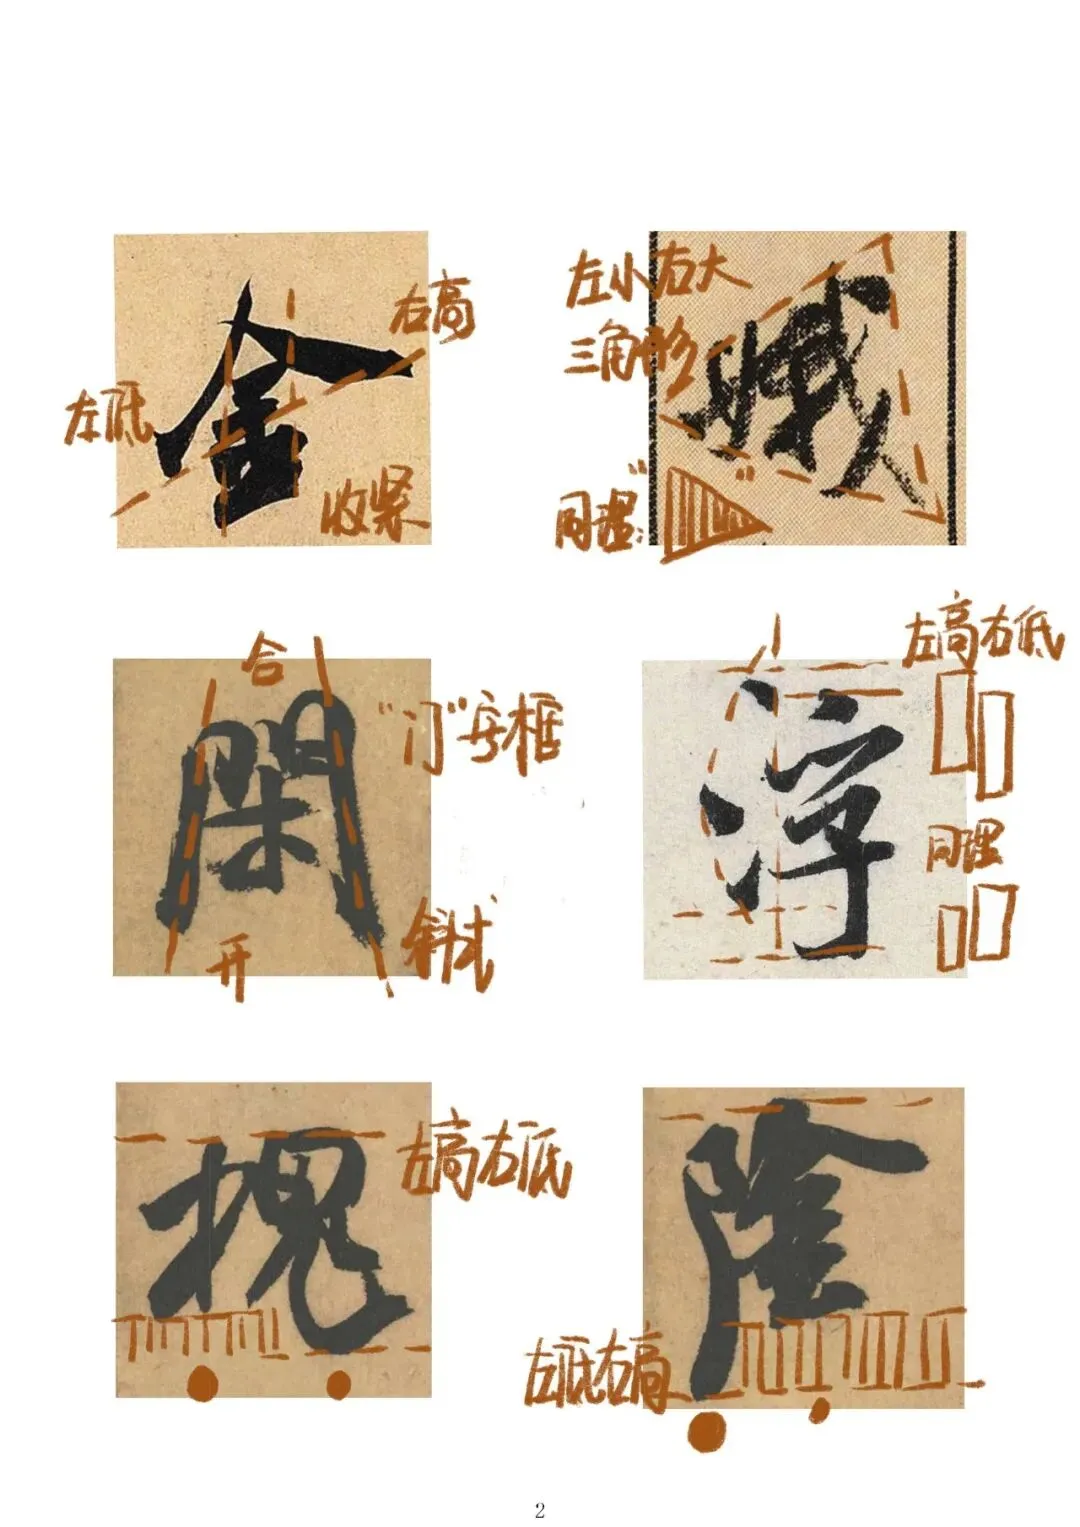 舍
右高
左低
收紧
左小右大
三角形
娥
同理：
" "
合
閑
"门"字框
开
斜式
左高右低
淳
同理
槐
左高右低
隆
左低右高
2